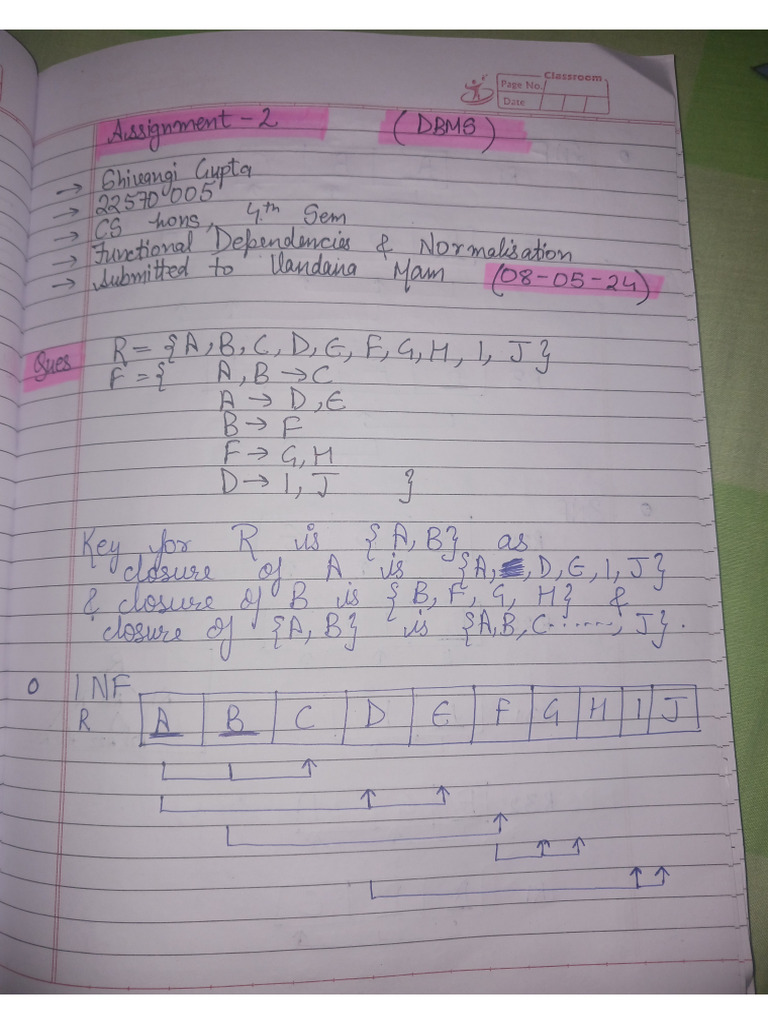 Classroom
Page No.
Date
Assignment - 2 (DBMS)
→ Shivangi Gupta
→ 22570005
→ CS hons, 4th Sem
→ Functional Dependencies & Normalisation
→ Submitted to Vandana Mam (08-05-24)
Ques R = {A, B, C, D, E, F, G, H, I, J}
F = { A, B → C
A → D, E
B → F
F → G, H
D → I, J }
Key for R is {A, B} as
closure of A is {A, D, E, I, J}
& closure of B is {B, F, G, H} &
closure of {A, B} is {A, B, C ......, J}.
0 1NF
R A B C D E F G H I J